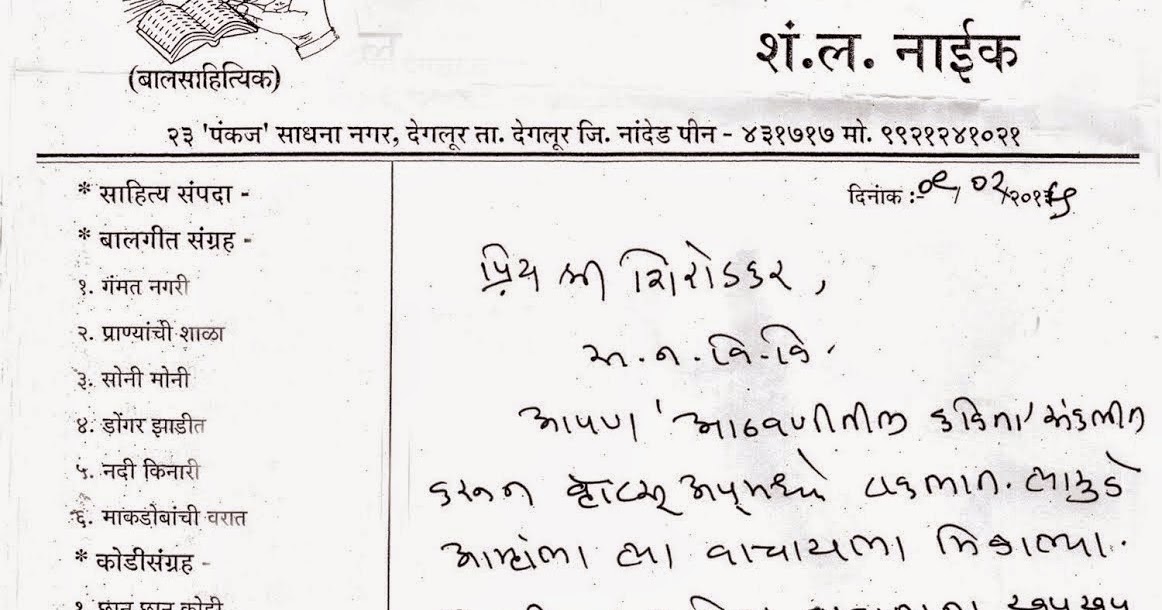 (बालसाहित्यिक)
शं.ल. नाईक
२३ 'पंकज' साधना नगर, देगलूर ता. देगलूर जि. नांदेड पीन - ४३१७१७ मो. ९९२१२४१०२१
* साहित्य संपदा -
* बालगीत संग्रह -
१. गंमत नगरी
२. प्राण्यांची शाळा
३. सोनी मोनी
४. डोंगर झाडीत
५. नदी किनारी
६. माकडोबांची वरात
* कोडीसंग्रह -
१. छान छान कोडी
दिनांक :- ०९/०२/२०१५
प्रिय श्री शिरोडकर,
स. न. वि. वि.
आपण 'आठवणीतील कविता' संकलीत
करून व्हाटस् अपमध्ये टाकलात. त्यामुळे
आम्हांला त्या वाचायला मिळाल्या.